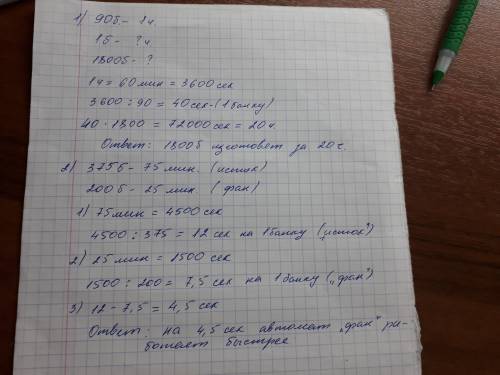 1) 90б. - 1ч.
1б - ?ч
1800б - ?
1ч = 60 мин = 3600 сек
3600 : 90 = 40 сек - (1 банку)
40 · 1800 = 72000 сек = 20 ч.
Ответ: 1800б изготовят за 20 ч.
2) 375б - 75 мин. (исток)
200б - 25 мин (фан)
1) 75 мин = 4500 сек
4500 : 375 = 12 сек на 1 банку („исток")
2) 25 мин = 1500 сек
1500 : 200 = 7,5 сек на 1 банку („фан")
3) 12 - 7,5 = 4,5 сек
Ответ: на 4,5 сек автомат „фан" ра-
ботает быстрее